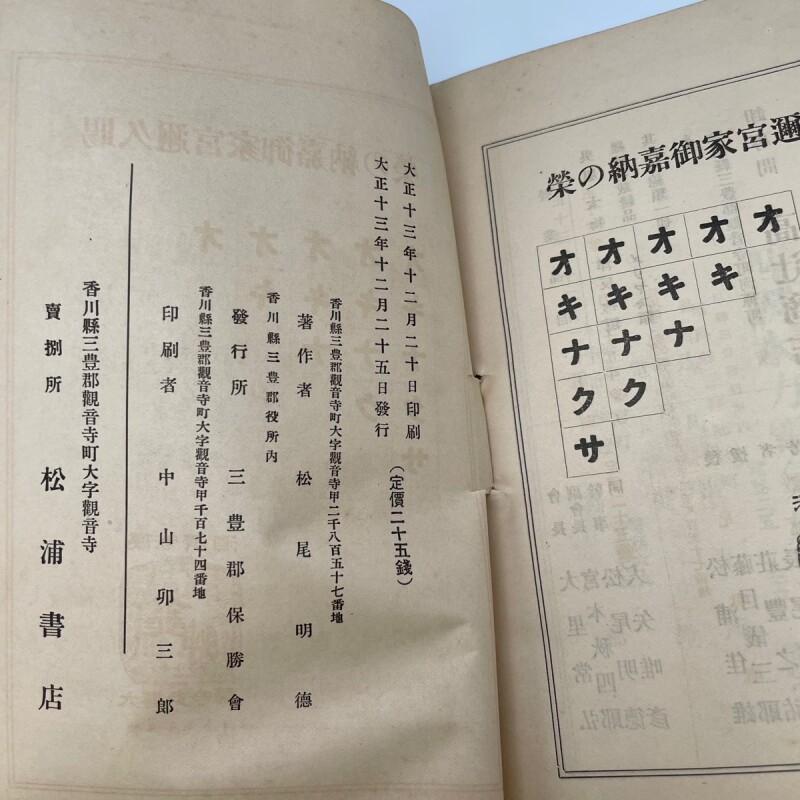 大正十三年十二月二十日印刷
大正十三年十二月二十五日發行
(定價二十五錢)
香川縣三豊郡觀音寺町大字觀音寺甲二千八百五十七番地
著作者 松尾明德
香川縣三豊郡役所内
發行所 三豊郡保勝會
香川縣三豊郡觀音寺町大字觀音寺甲千百七十四番地
印刷者 中山卯三郎
香川縣三豊郡觀音寺町大字觀音寺
賣捌所 松浦書店
邇宮家御嘉納の榮
オオオオオ
キキキキ
ナナナ
クク
サ